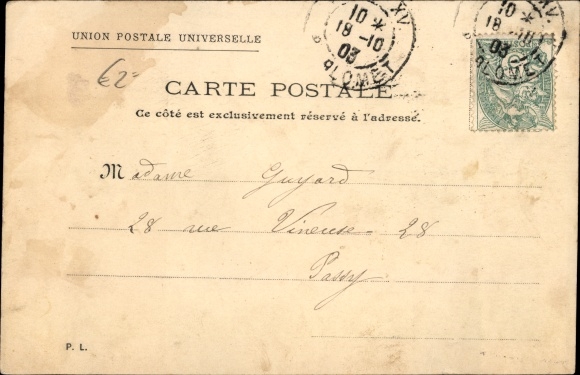 UNION POSTALE UNIVERSELLE
€2-
CARTE POSTALE
Ce côté est exclusivement réservé à l'adresse.
Madame Guyard
28 rue Vineuse - 28
Passy
P. L.
XV
10 *
18-10
03
BLOMET
XV.
10 *
18-10
03
BLOMET